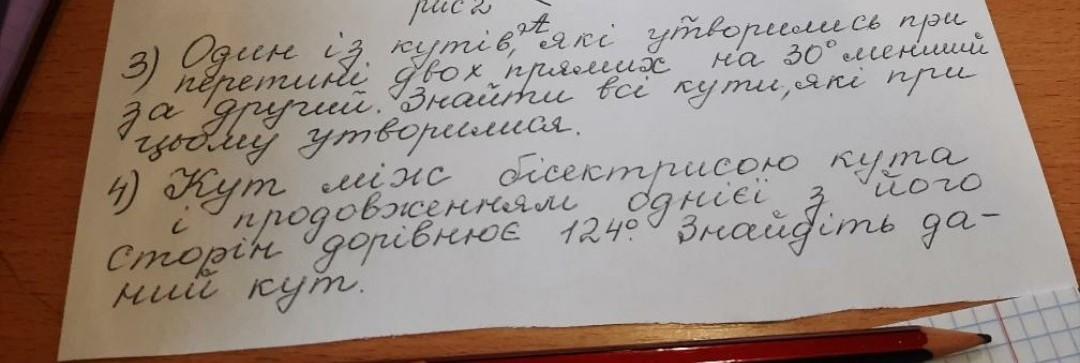 рис 2
3) Один із кутів, які утворились при
перетині двох прямих на 30° менший
за другий. Знайти всі кути, які при
цьому утворилися.
4) Кут між бісектрисою кута
і продовженням однієї з його
сторін дорівнює 124°. Знайдіть да-
ний кут.